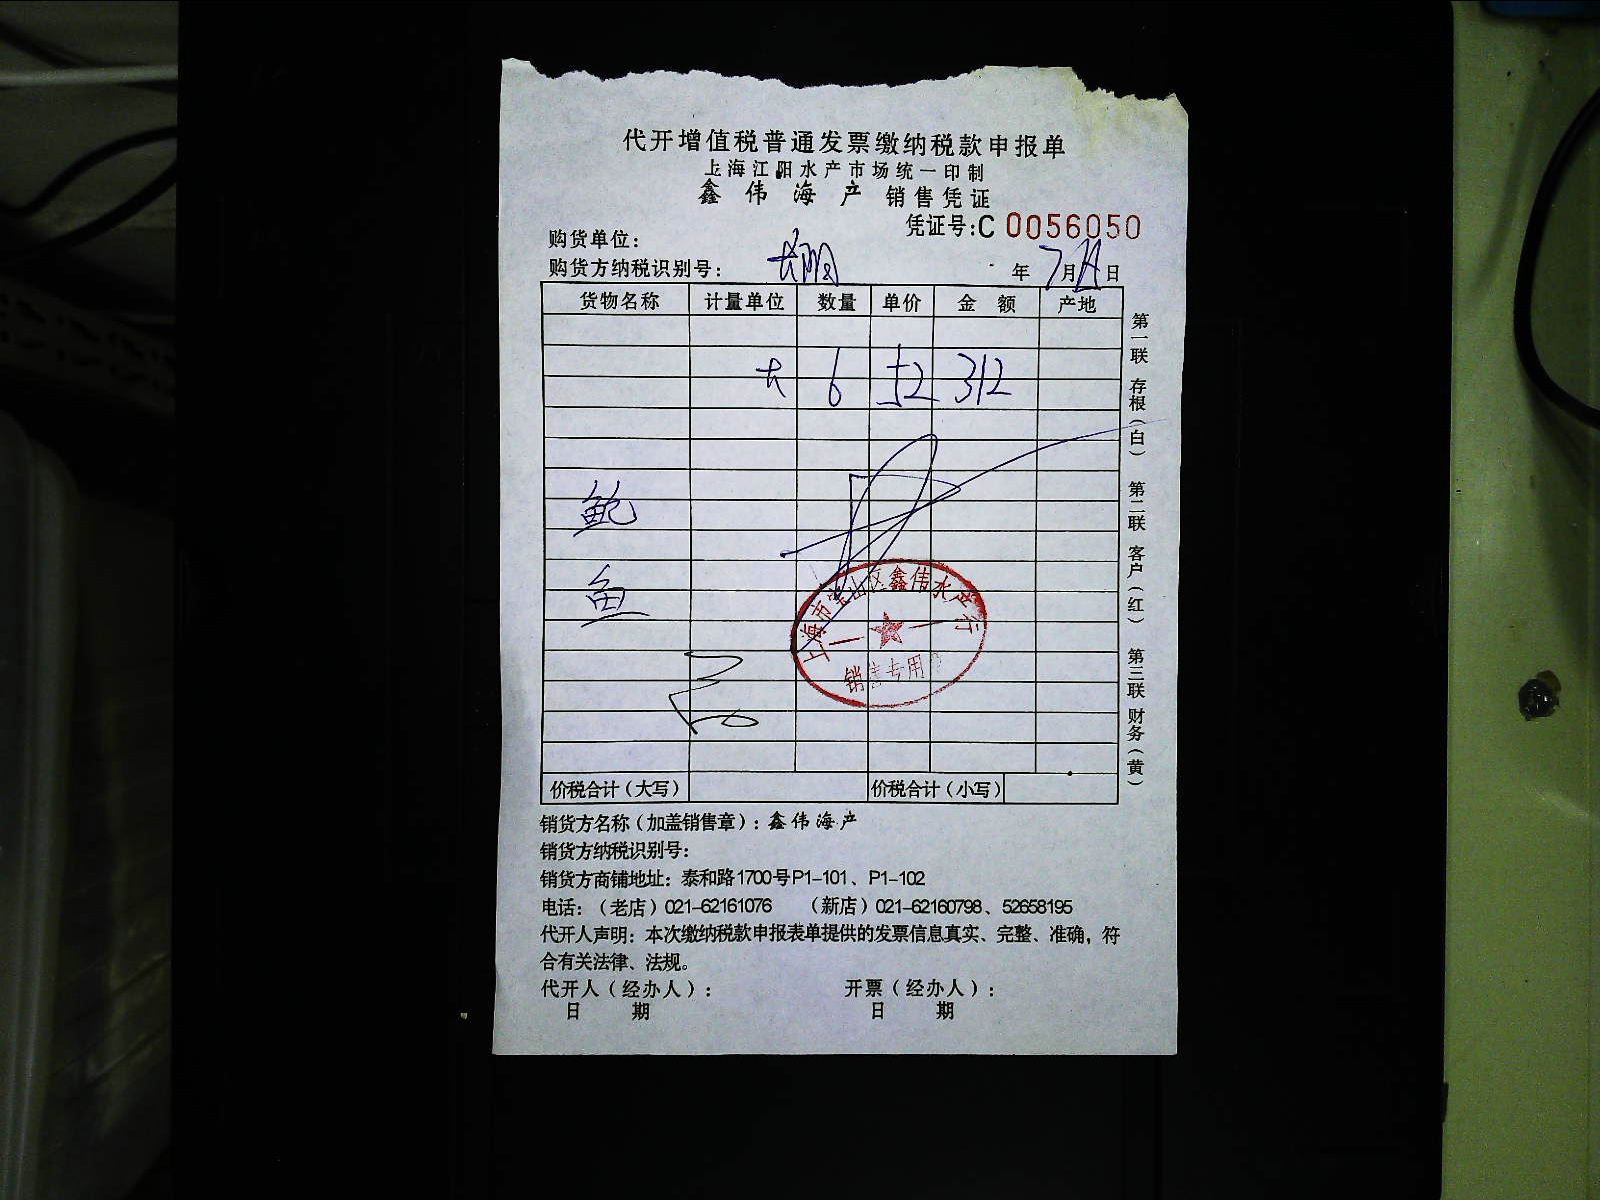 代开增值税普通发票缴纳税款申报单
上海江阳水产市场统一印制
鑫伟海产 销售凭证
凭证号:C 0056050
购货单位:
购货方纳税识别号:
年 7月 日
货物名称 计量单位 数量 单价 金额 产地
6 52 312
鲍
鱼
上海市宝山区鑫伟水产行
销售专用
价税合计(大写) 价税合计(小写)
第一联 存根(白) 第二联 客户(红) 第三联 财务(黄)
销货方名称(加盖销售章):鑫伟海产
销货方纳税识别号:
销货方商铺地址:泰和路1700号P1-101、P1-102
电话:(老店)021-62161076 (新店)021-62160798、52658195
代开人声明:本次缴纳税款申报表单提供的发票信息真实、完整、准确,符
合有关法律、法规。
代开人(经办人): 开票(经办人):
日 期 日 期